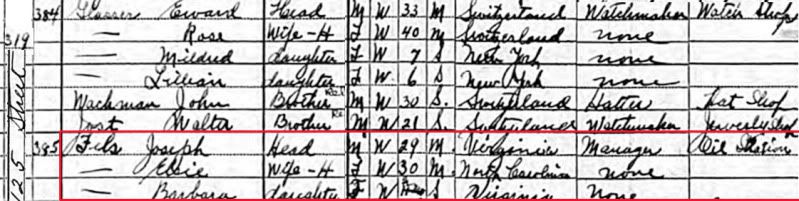 384 Glasser Eward Head M W 33 M Switzerland Watchmaker Watch Shop
— Rose Wife-H F W 40 M Switzerland none
319 — Mildred daughter F W 7 S New York none
— Lillian daughter F W 6 S New York none
Wachman John Brother M W 30 S. Switzerland Hatter Hat Shop
Jost Walter Brother M W 21 S. Switzerland Watchmaker Jewerly Shop
385 Fels Joseph Head M W 29 M. Virginia Manager Oil Station
— Elsie Wife-H F W 30 M North Carolina none
125 Street — Barbara daughter F W S Virginia None